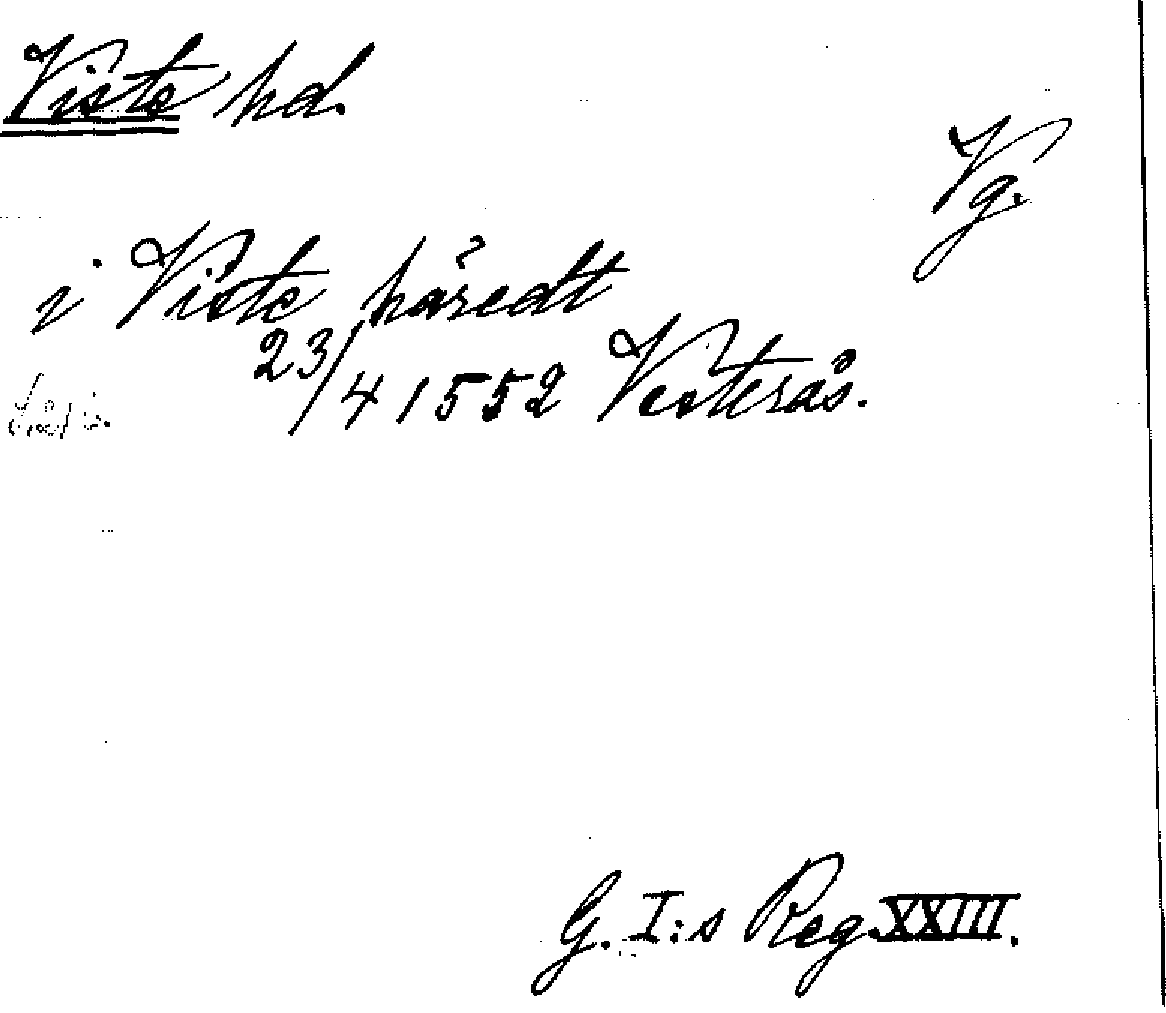 Viste hd.
Vg.
i Viste häredt
23/4 1552 Vesterås.
G. I:s Reg XXIII.